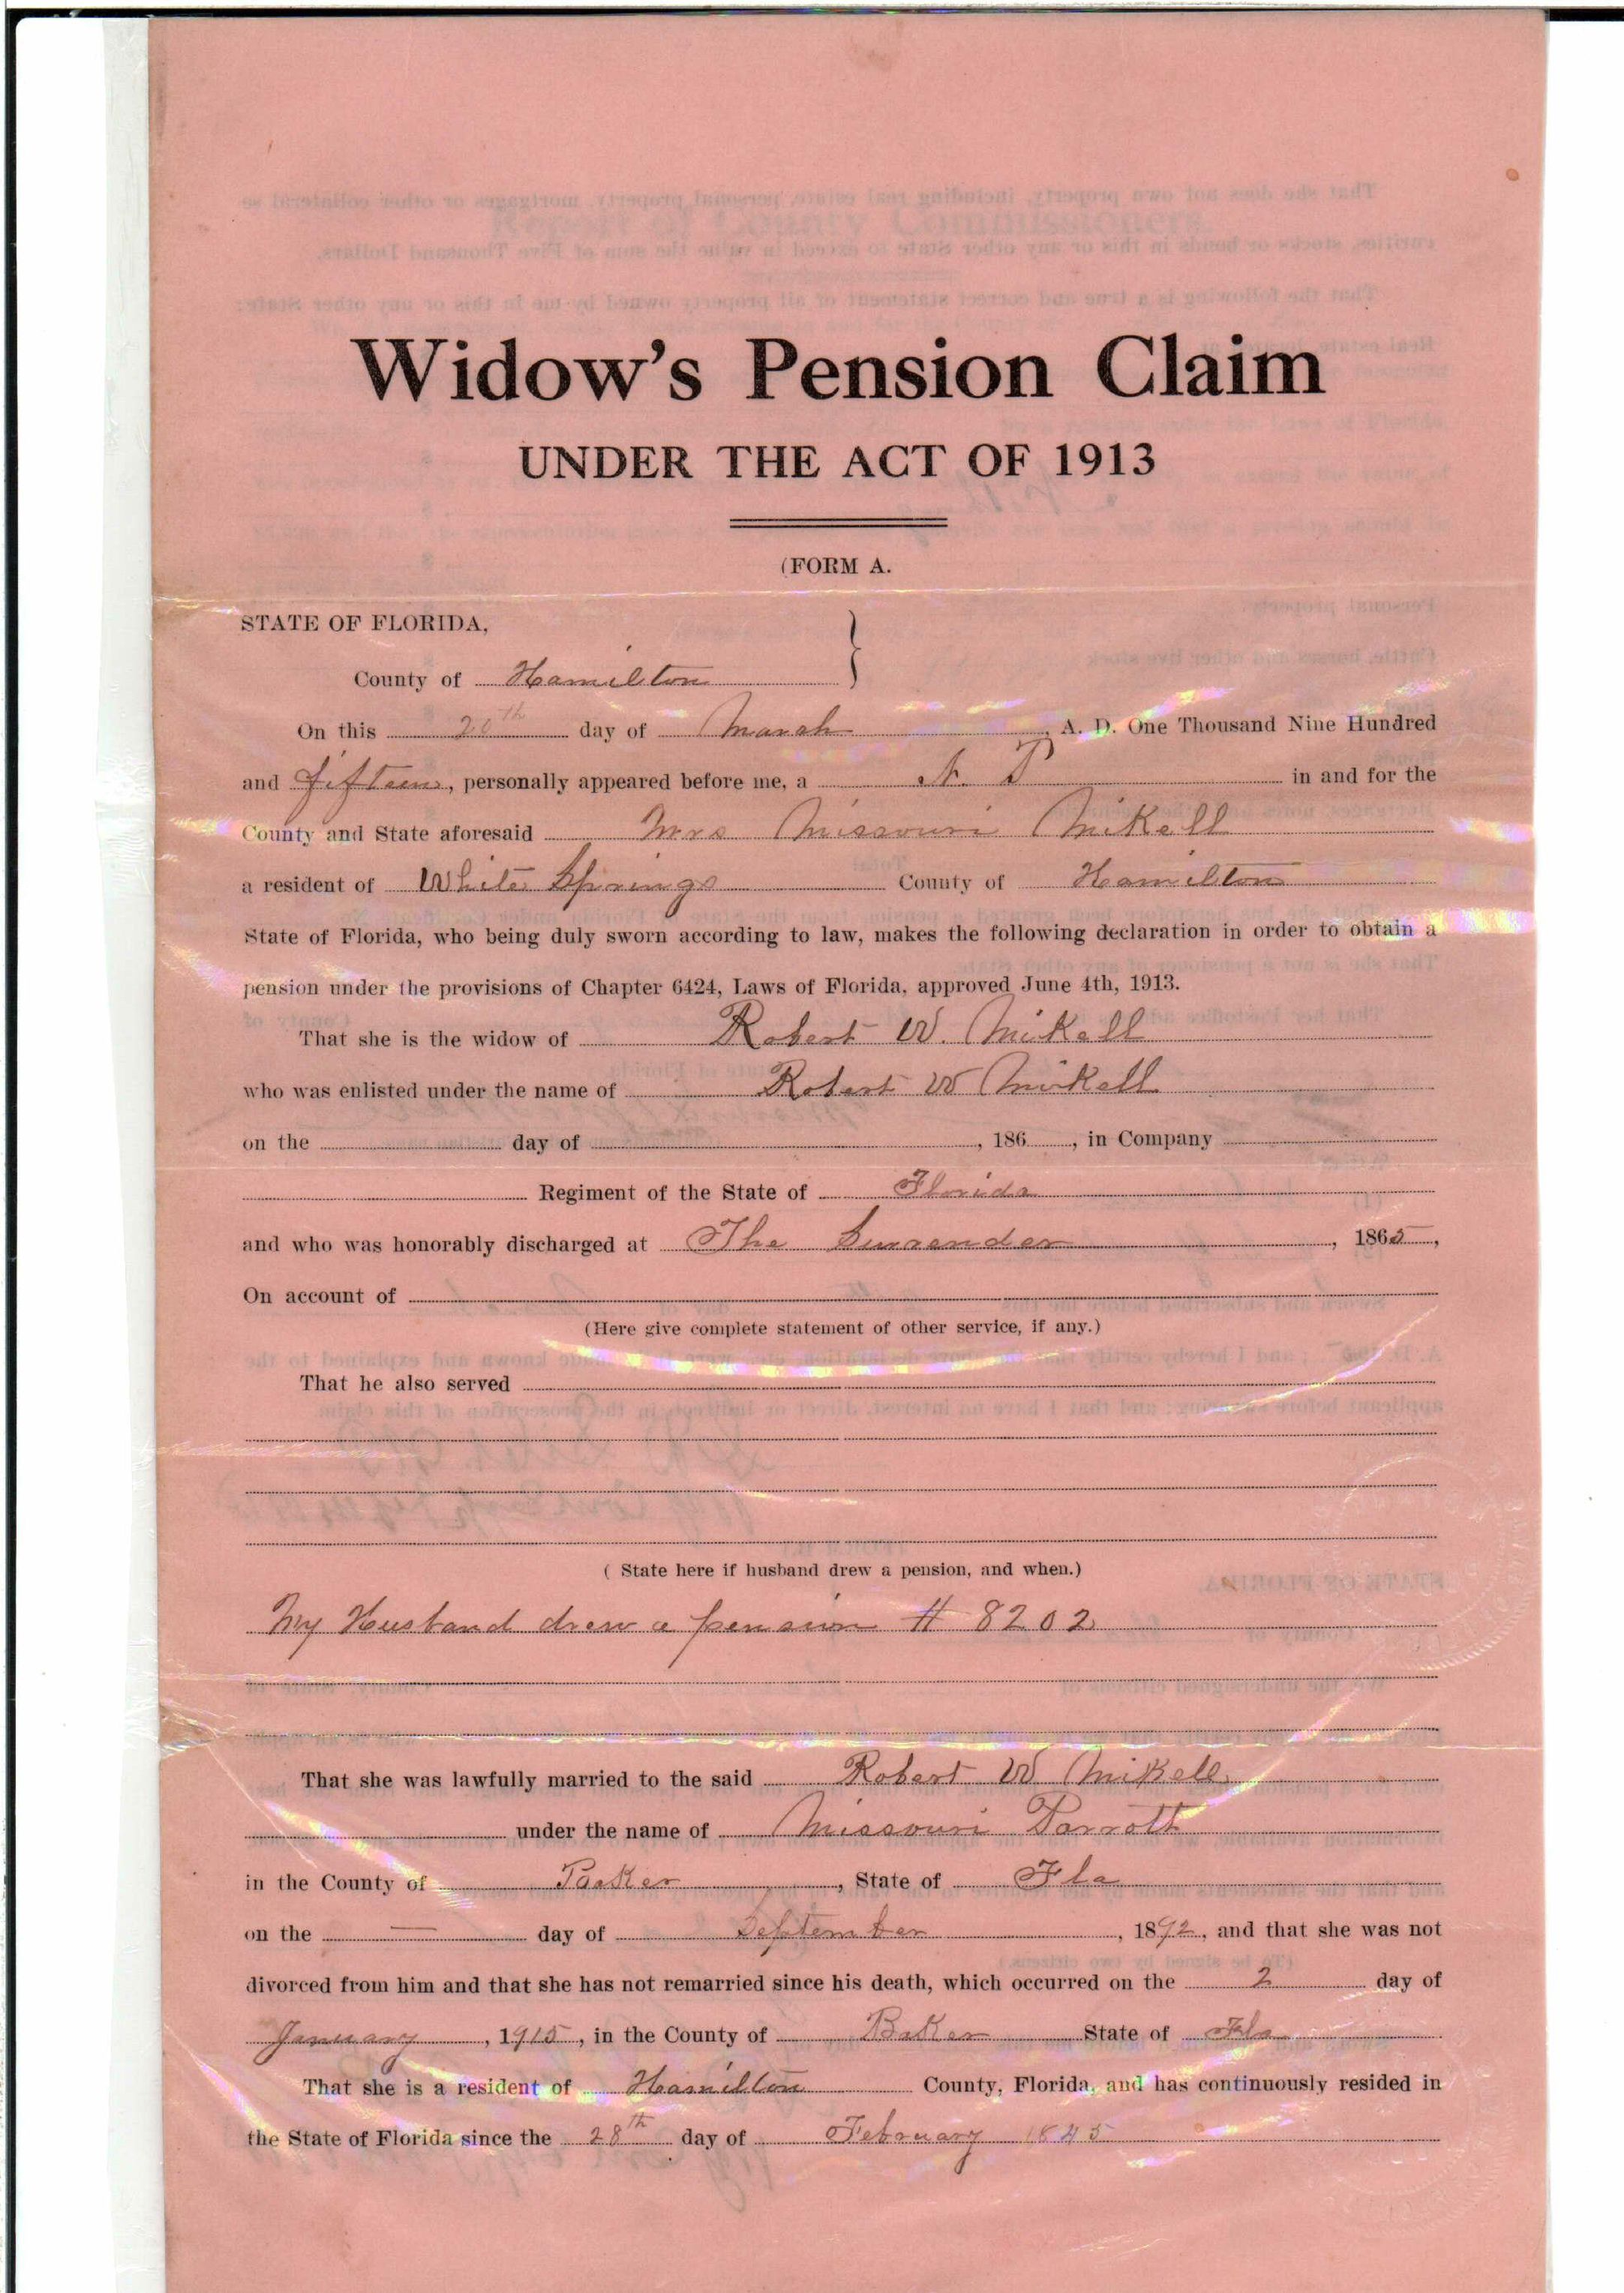 Widow's Pension Claim
UNDER THE ACT OF 1913
(FORM A.
STATE OF FLORIDA,
County of Hamilton
On this 20th day of March, A. D. One Thousand Nine Hundred
and fifteen, personally appeared before me, a N. P in and for the
County and State aforesaid Mrs Missouri Mikell
a resident of White Springs County of Hamilton
State of Florida, who being duly sworn according to law, makes the following declaration in order to obtain a
pension under the provisions of Chapter 6424, Laws of Florida, approved June 4th, 1913.
That she is the widow of Robert W. Mikell
who was enlisted under the name of Robert W Mikell
on the day of , 186 , in Company
Regiment of the State of Florida
and who was honorably discharged at The Surrender, 1865,
On account of
(Here give complete statement of other service, if any.)
That he also served
( State here if husband drew a pension, and when.)
My Husband drew a pension # 8202
That she was lawfully married to the said Robert W Mikell
under the name of Missouri Parrott
in the County of Baker, State of Fla
on the — day of September, 1892, and that she was not
divorced from him and that she has not remarried since his death, which occurred on the 2 day of
January, 1915, in the County of Baker State of Fla
That she is a resident of Hamilton County, Florida, and has continuously resided in
the State of Florida since the 28th day of February 1845